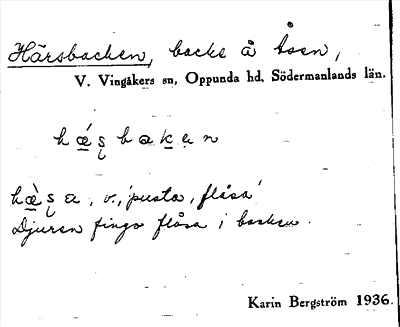 Härsbacken, backe å åsen,
V. Vingåkers sn, Oppunda hd, Södermanlands län.
hǽʂbakɐn
hæ̀ʂa, v., 'pusta, flåsa'
Djuren fingo flåsa i backen.
Karin Bergström 1936.